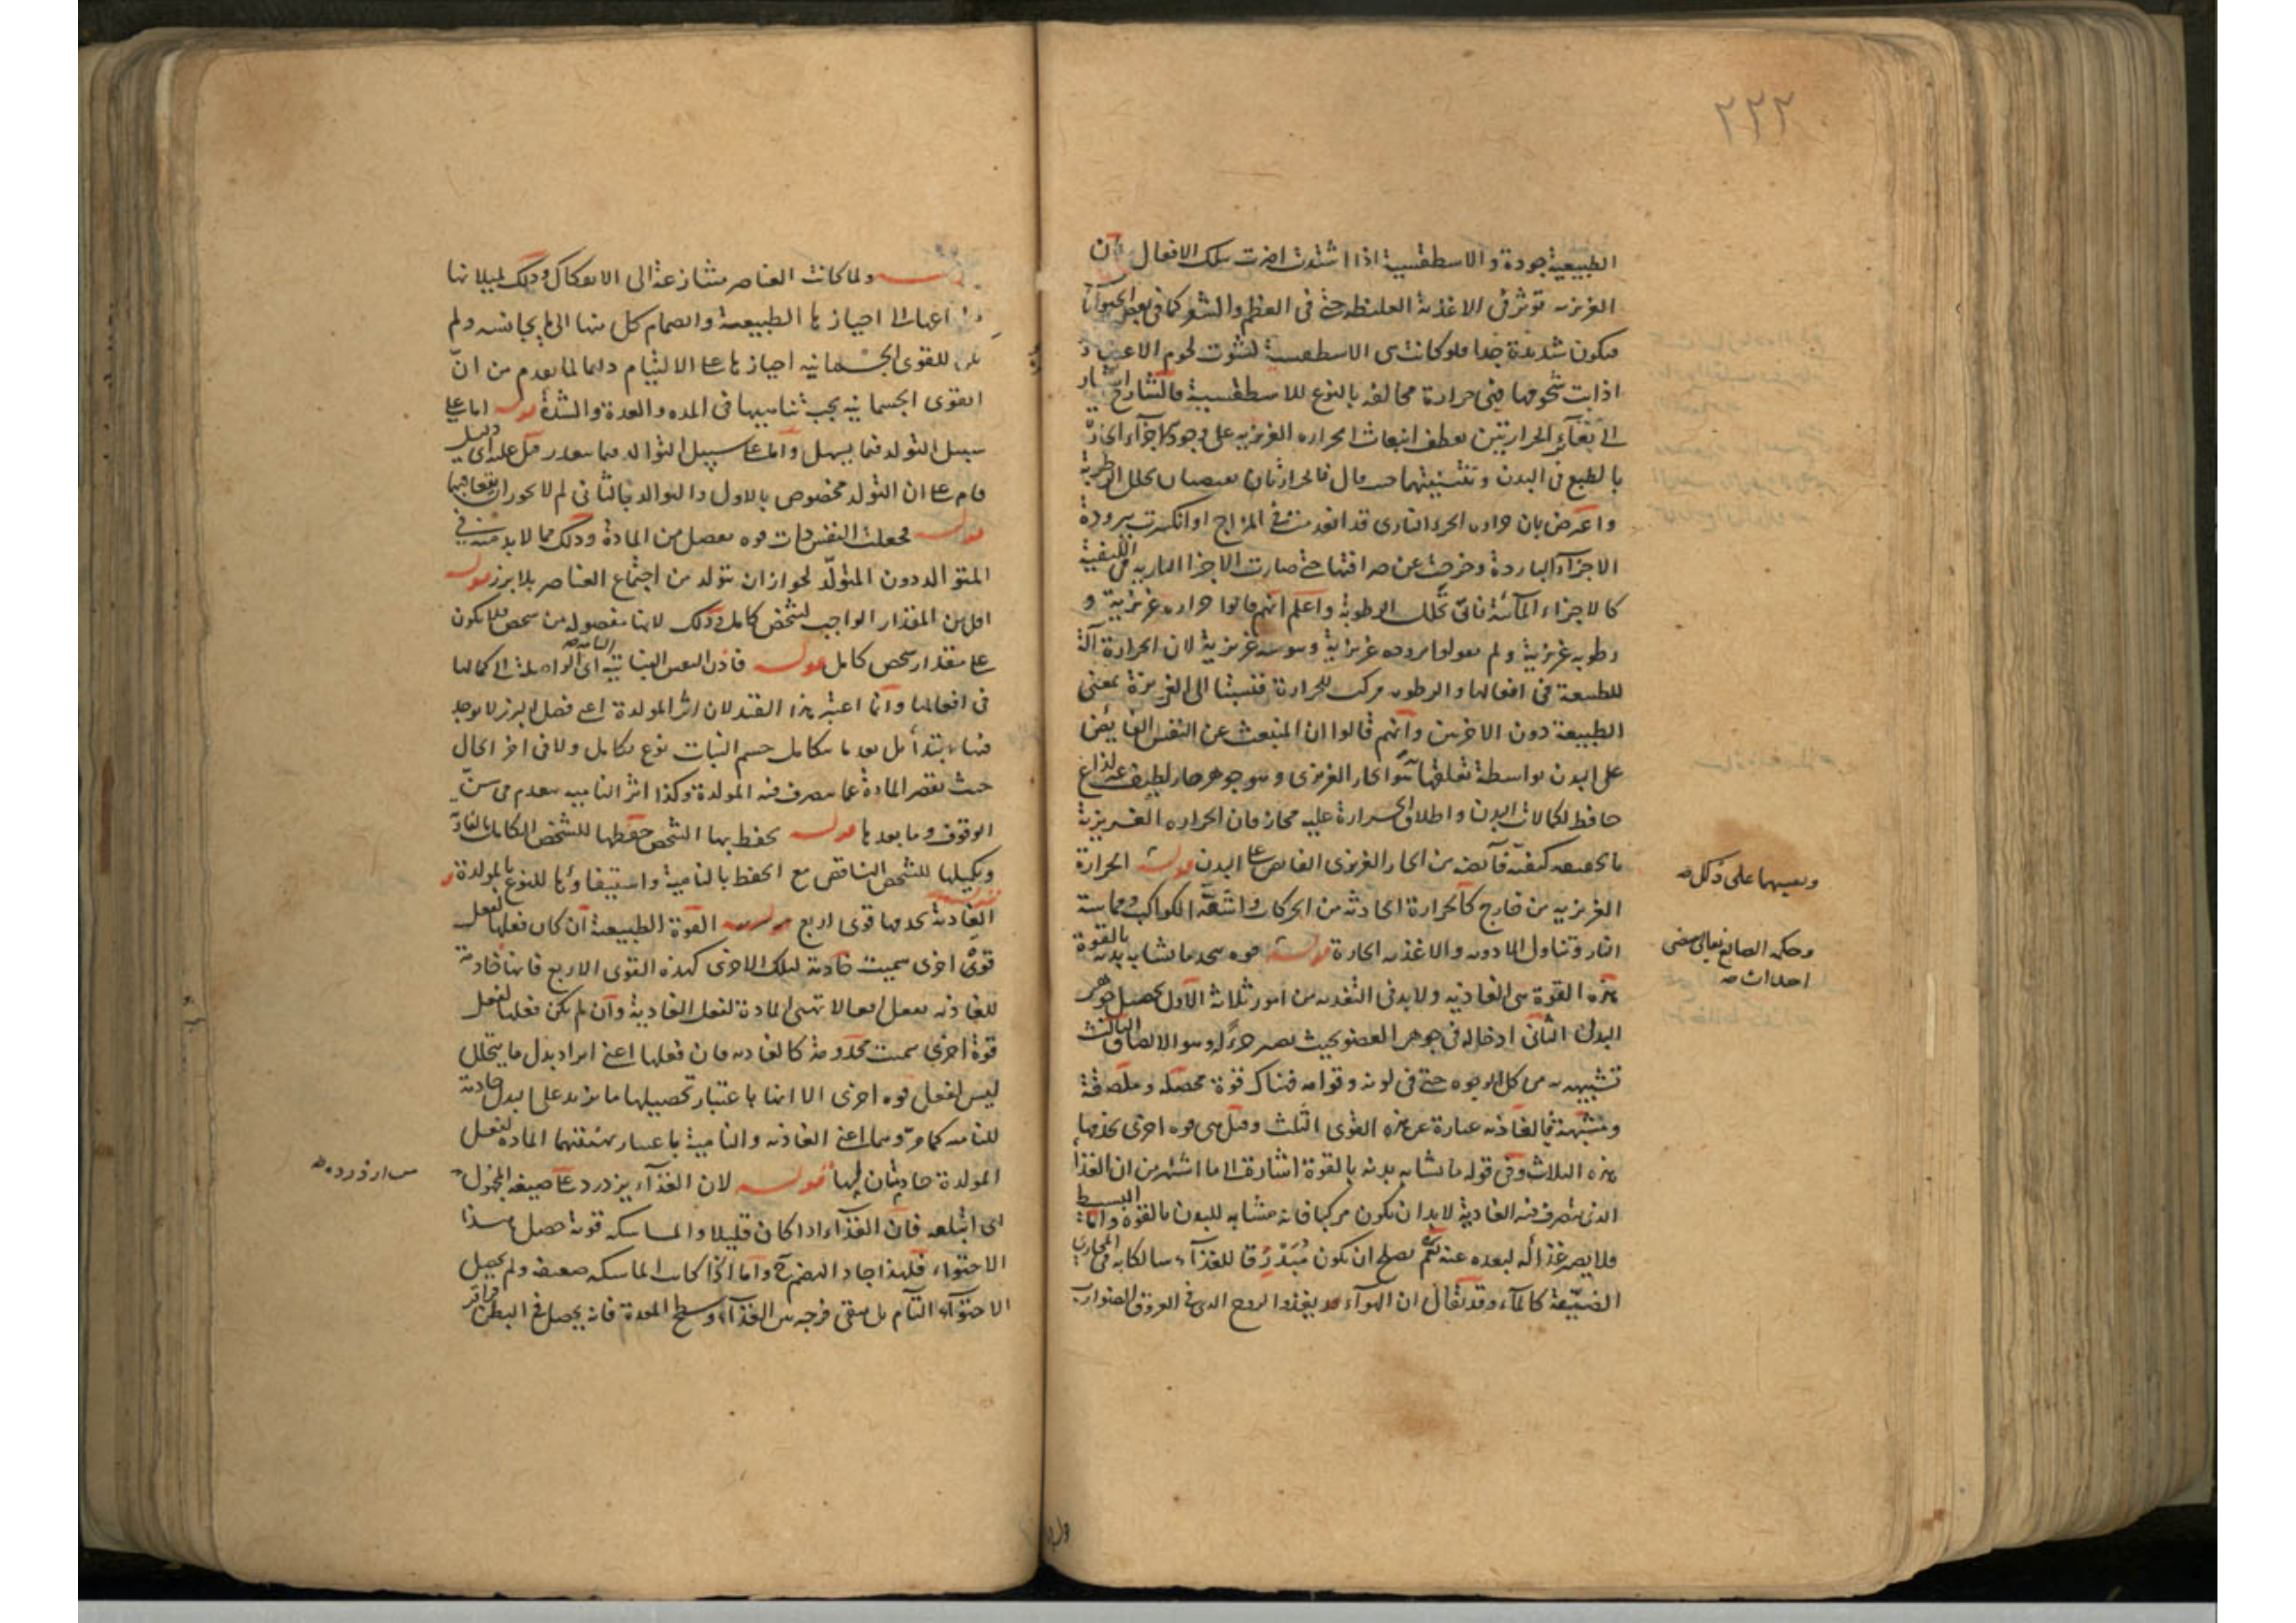 ٢٢٢
الطبيعية جودة والاسطقسية اذا اشتدت اضرت بتلك الافعال فان
الغريزية تؤثر فى الاغذية الغليظة حتى فى العظم والشعر كما فى بعض الحيوانات
فيكون شديدة جدا فلو كانت هى الاسطقسية لشوت لحوم الاعضاء و
اذابت شحومها فهى حرارة مخالفة بالنوع للاسطقسية فالشارح اشار
الى تغاير الحرارتين بعطف انبعاث الحراره الغريزيه على وجود الاجزاء الحارة
بالطبع فى البدن حيث قال فالحرارتان على تحلل الرطوبة
واعترض بان حرارة الجزء النارى قد انعدمت فى المزاج او انكسرت ببرودة
الاجزاء الباردة وخرجت عن صرافتها حتى صارت الاجزاء النارية فى الكيفية
كالاجزاء المائية فانى تحلل الرطوبة واعلم انهم قالوا حرارة غريزية و
رطوبة غريزية ولم يقولوا برودة غريزية ويبوسة غريزية لان الحرارة آلة
للطبيعة فى افعالها والرطوبة مركب للحرارة فنسبتا الى الغريزة بمعنى
الطبيعة دون الاخريين وانهم قالوا ان المنبعث عن النفس الفايض
على البدن بواسطة تعلقها هو الحار الغريزى وهو جوهر حار لطيف غير لذاع
حافظ لكمالات البدن واطلاق الحرارة عليه مجاز فان الحرارة الغريزية
بالحقيقة كيفية فائضة من الحار الغريزى الفائض على البدن قوله الحرارة
الغريزية من خارج كالحرارة الحادثة من الحركات واشعة الكواكب ومماسة
النار وتناول الادوية والاغذية الحارة قوله قوة ما تشابه بدنه بالقوة
هذه القوة هى الغاذية ولا بد فى التغذية من امور ثلاثة الاول تحصيل جوهر
البدل الثانى ادخاله فى جوهر العضو بحيث يصير جزءا له وهو الالصاق الثالث
تشبيهه به من كل الوجوه حتى فى لونه وقوامه فهناك قوة محصلة وملصقة
ومشبهة فالغاذية عبارة عن هذه القوى الثلث وقيل هى قوة اخرى تخدمها
هذه الثلاث وفى قوله ما تشابه بدنه بالقوة اشارة الى ما اشتهر من ان الغذا
الذى يتصرف فيه الغاذية لا بد ان يكون مركبا فانه مشابه للبدن بالقوة واما البسيط
فلا يصير غذاء له لبعده عنه نعم يصلح ان يكون مبذرقا للغذاء سالكا به فى المجارى
الضيقة كالماء وقد يقال ان الهواء قد يغذو الروح الذى فى العروق الضوارب
على ذلك صه
وحكمة الصانع تعالى
صه
ولما كانت العناصر متنازعة الى الانفكاك وذلك لميلانها
الى احيازها الطبيعية وانضمام كل منها الى ما يجانسه ولم
يكن للقوى الجسمانية اجبارها على الالتيام دائما لما تقدم من ان
القوى الجسمانية يجب تناهيها فى المدة والعدة والشدة قوله اما على
سبيل التولد فيما يسهل واما على سبيل التوالد فيما يتعذر قيل عليه اى دليل
قام على ان التولد مخصوص بالاول والتوالد بالثانى لم لا يجوز
قوله فجعلت النفس ذات قوة تفصل من المادة وذلك مما لا بد منه فى
المتوالد دون المتولد لجواز ان تولد من اجتماع العناصر بلا بزر قوله
اقل من المقدار الواجب لشخص كامل وذلك لانها مفصولة من شخص فلا يكون
على مقدار شخص كامل قوله فاذن النفس النباتية التامة اى الواصلة الى كمالها
فى افعالها وانما اعتبر هذا القيد لان اثر المولدة اعنى فصل البزر لا يوجد
فيها ابتداء بل بعد ما يتكامل جسم النبات نوع تكامل ولا فى اخر الحال
حيث تقصر المادة عما يتصرف فيه المولدة وكذا اثر النامية ينعدم فى سن
الوقوف وما بعدها قوله يحفظ بها الشخص حفظها للشخص الكامل بالغاذية
وتكميلها للشخص الناقص مع الحفظ بالنامية واستبقاؤها للنوع بالمولدة
الغاذية يخدمها قوى اربع قوله القوة الطبيعية ان كان فعلها لفعل
قوى اخرى سميت خادمة لتلك الاخرى كهذه القوى الاربع فانها خادمة
للغاذية تفعل افعالا تهيئ المادة لفعل الغاذية وان لم يكن فعلها لفعل
قوة اخرى سميت مخدومة كالغاذية فان فعلها اعنى ايراد بدل ما يتحلل
ليس لفعل قوة اخرى الا انها باعتبار تحصيلها ما يزيد على البدل خادمة
للنامية كما مر وهما اعنى الغاذية والنامية باعتبار تهيئتهما المادة لفعل
المولدة خادمتان لها قوله لان الغذاء يزدرد على صيغة المجهول
اى ابتلعه فان الغذاء اذا كان قليلا والماسكة قوية حصل هذا
الاحتواء فلهذا جاد الهضم واما اذا كانت الماسكة ضعيفة ولم يحصل
الاحتواء التام بل يبقى فرجه بين الغذاء وسطح المعدة فانه يحصل فى البطن قراقر
من ازدرده صه